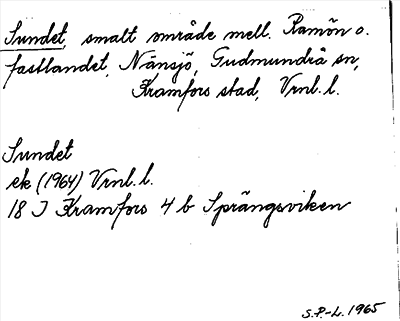 Sundet, smalt område mell. Ramön o.
fastlandet, Nänsjö, Gudmundrå sn,
Kramfors stad, Vrnl. l.
Sundet
ek (1964) Vrnl. l.
18 J Kramfors 4 b Sprängsviken
S.P.-L. 1965